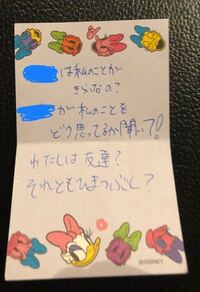 は私のことが
きらいなの？
が私のことを
どう思ってるか聞いて！
わたしは友達？
それともひまつぶし？
©DISNEY